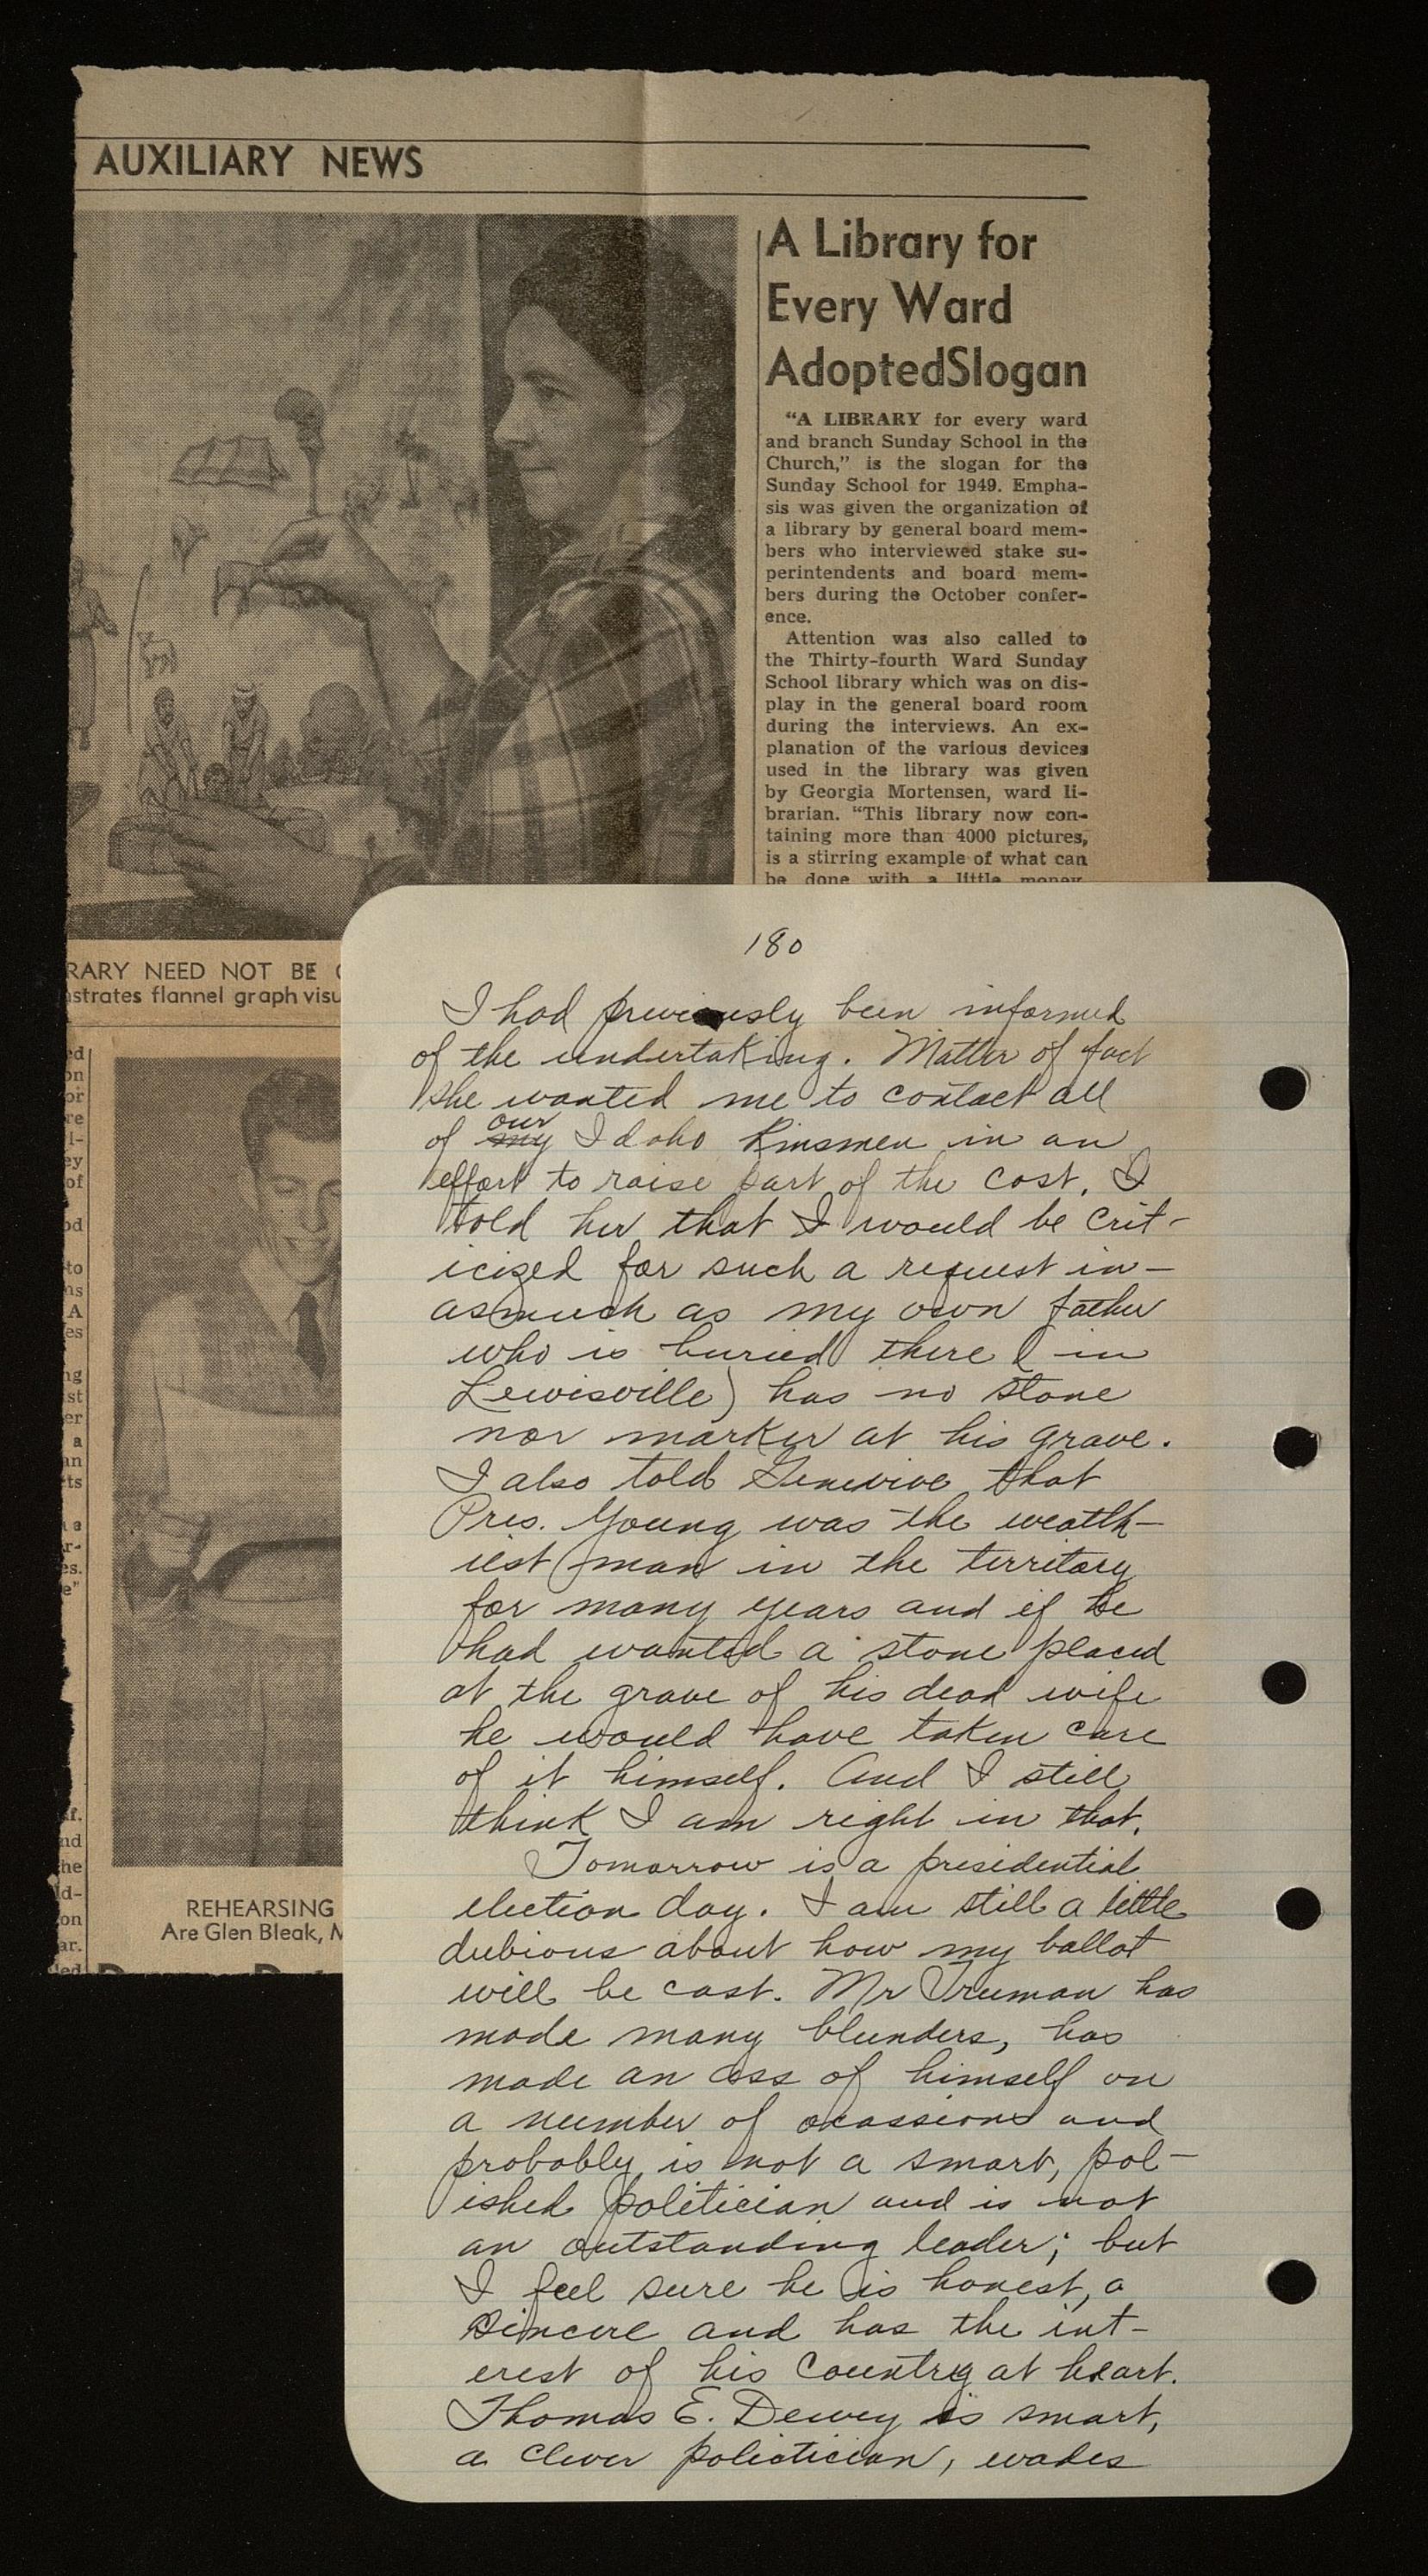 AUXILIARY NEWS
A Library for
Every Ward
AdoptedSlogan
"A LIBRARY for every ward
and branch Sunday School in the
Church," is the slogan for the
Sunday School for 1949. Empha-
sis was given the organization of
a library by general board mem-
bers who interviewed stake su-
perintendents and board mem-
bers during the October confer-
ence.
Attention was also called to
the Thirty-fourth Ward Sunday
School library which was on dis-
play in the general board room
during the interviews. An ex-
planation of the various devices
used in the library was given
by Georgia Mortensen, ward li-
brarian. "This library now con-
taining more than 4000 pictures,
is a stirring example of what can
be done with a little money
RARY NEED NOT BE
strates flannel graph visu
ed
on
or
re
l-
ey
of
od
to
ns
A
es
ng
st
er
a
an
ts
a
r-
es.
e"
f.
nd
he
ld-
on
ar.
led
REHEARSING
Are Glen Bleak, M
180
I had previously been informed
of the undertaking. Matter of fact
she wanted me to contact all
of my our Idaho Kinsmen in an
effort to raise part of the cost. I
told her that I would be crit-
icized for such a request in-
asmuch as my own father
who is buried there (in
Lewisville) has no stone
nor marker at his grave.
I also told Genevive that
Pres. Young was the wealth-
iest man in the territory
for many years and if he
had wanted a stone placed
at the grave of his dead wife
he would have taken care
of it himself. And I still
think I am right in that.
Tomorrow is a presidential
election day. I am still a little
dubious about how my ballot
will be cast. Mr Truman has
made many blunders, has
made an ass of himself on
a number of ocassions and
probably is not a smart, pol-
ished politician and is not
an outstanding leader; but
I feel sure he is honest, a
sincere and has the int-
erest of his Country at heart.
Thomas E. Dewey is smart,
a clever poliotician, evades